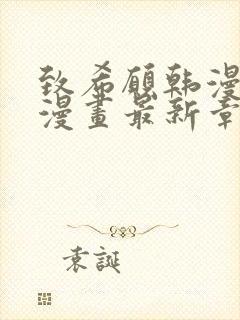 致希愿韩漫
漫畫最新章
袁誕